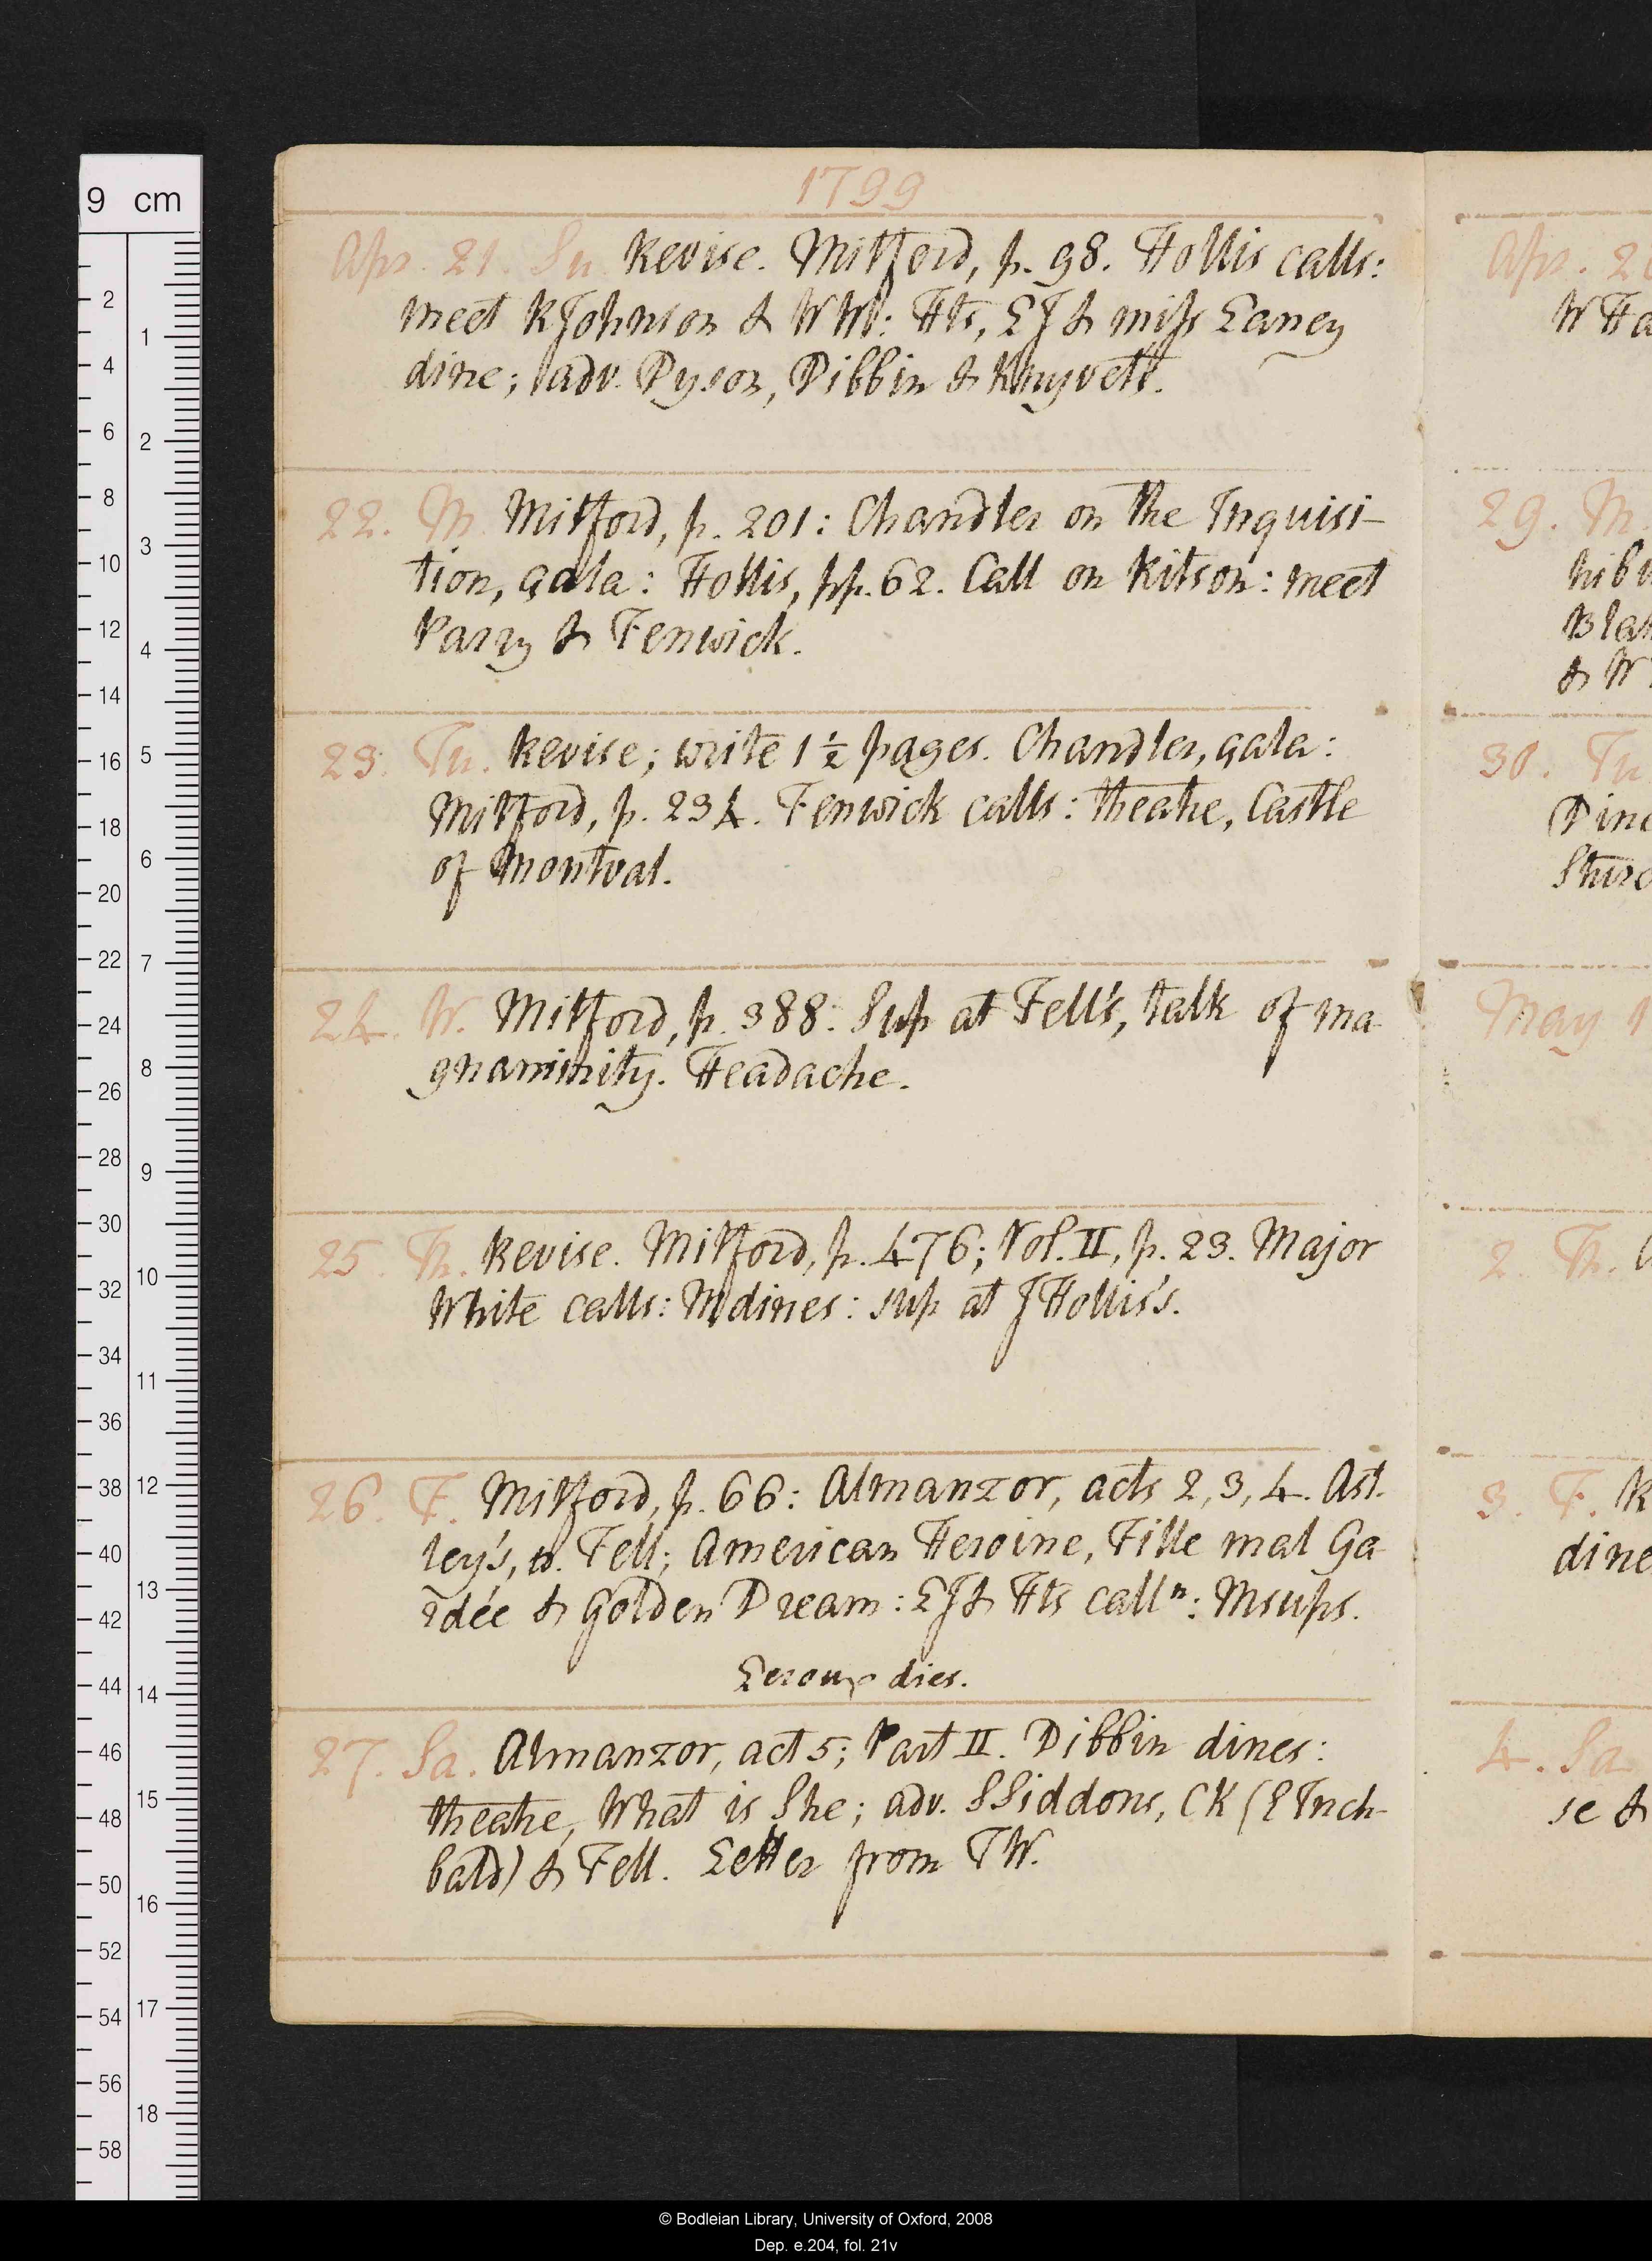 1799
Apr. 21. Su. Revise. Mitford, p. 98. Hollis calls:
meet RJohnson & WW: Hts, LJ & miss Laney
dine; adv. Dyson, Dibbin & Knyvett.
22. M. Mitford, p. 201: Chandler on the Inquisi-
tion, çala: Hollis, pp. 62. Call on Ritson: meet
Parry & Fenwick.
23. Tu. Revise; write 1 ½ pages. Chandler, çala:
Mitford, p. 234. Fenwick calls: theatre, Castle
of Montval.
24. W. Mitford, p. 388. Sup at Fell's, talk of ma-
gnanimity. Headache.
25. Th. Revise. Mitford, p. 476; Vol. II, p. 23. Major
White calls: M dines: sup at JHollis's.
26. F. Mitford, p. 66: Almanzor, acts 2, 3, 4. Ast-
ley's, w. Fell; American Heroine, Fille mal Ga-
rdée & Golden Dream: LJ & Hts callⁿ: M sups.
dies.
27. Sa. Almanzor, act 5; Part II. Dibbin dines:
theatre, What is She; adv. SSiddons, CK (E Inch-
bald) & Fell. Letter from TW.
Apr. 2
W Ha
29. M
hib
Bla
& W
30. Tu
Dine
Stur
May 1
2. Th.
3. F. R
dine
4. Sa
se &
9 cm
2
4
6
8
10
12
14
16
18
20
22
24
26
28
30
32
34
36
38
40
42
44
46
48
50
52
54
56
58
1
2
3
4
5
6
7
8
9
10
11
12
13
14
15
16
17
18
© Bodleian Library, University of Oxford, 2008
Dep. e.204, fol. 21v